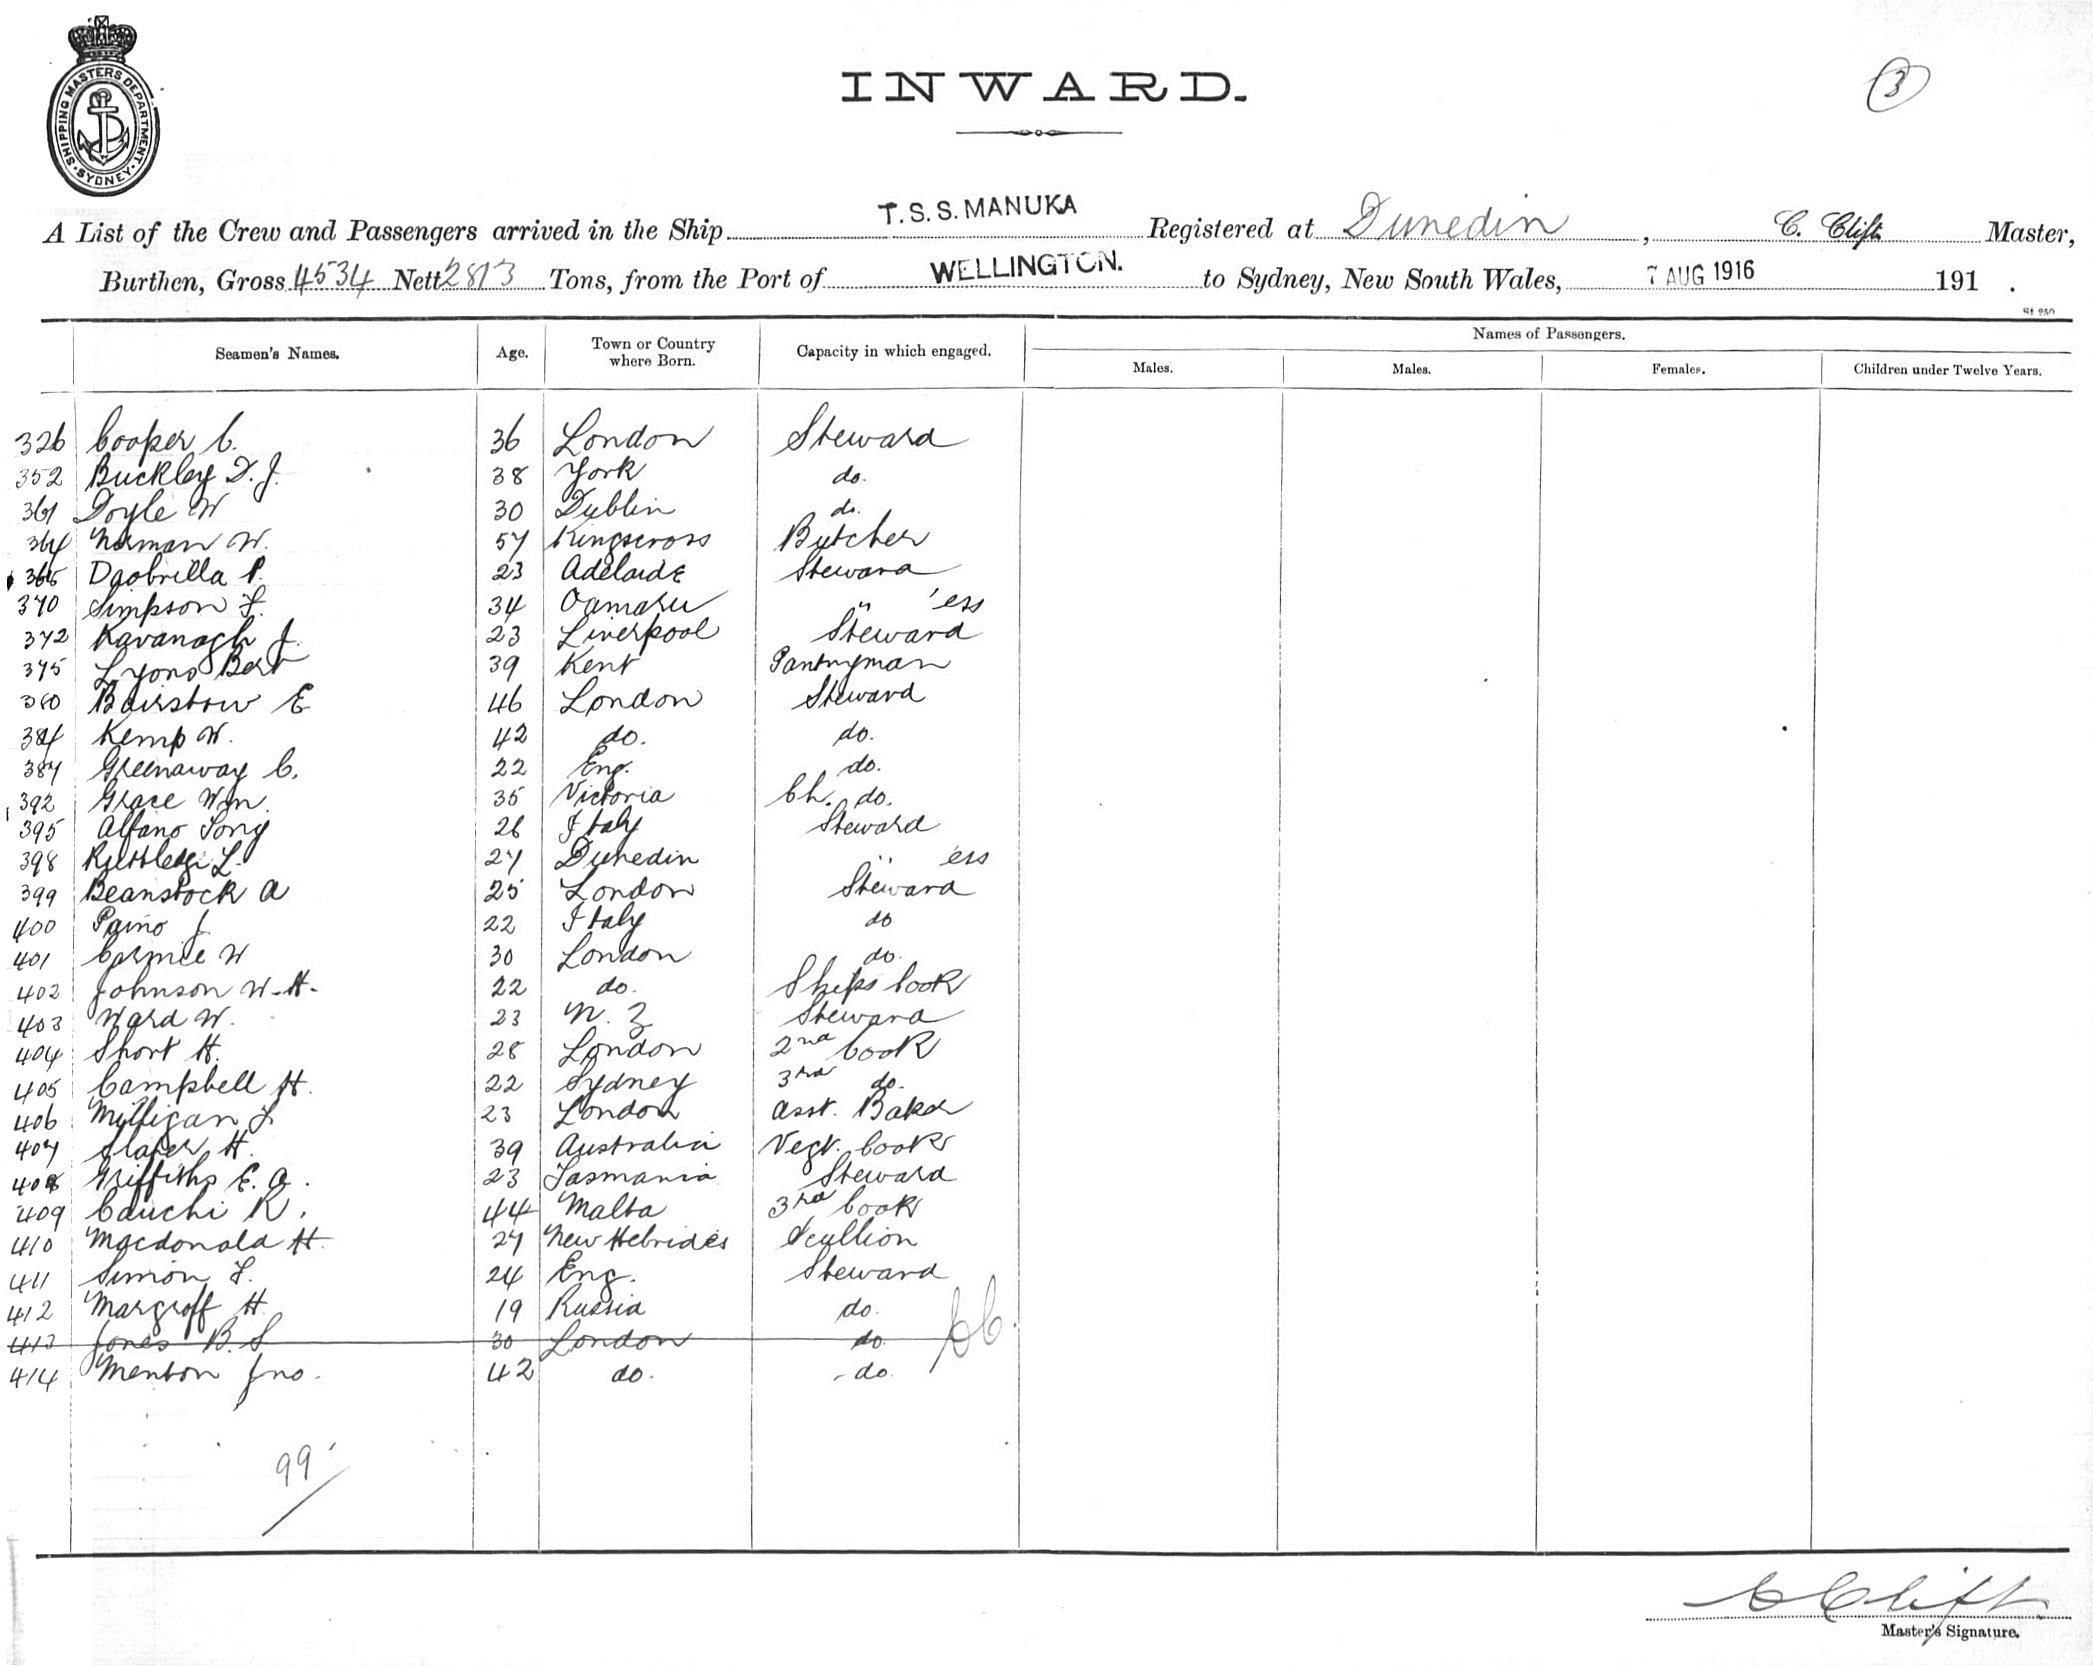 SHIPPING MASTERS DEPARTMENT · SYDNEY ·
INWARD.
3
A List of the Crew and Passengers arrived in the Ship T.S.S. MANUKA Registered at Dunedin, C. Clift Master,
Burthen, Gross 4534 Nett 2813 Tons, from the Port of WELLINGTON. to Sydney, New South Wales, 7 AUG 1916 191 .
St 250
Seamen's Names. Age. Town or Country where Born. Capacity in which engaged. Names of Passengers.
Males. Males. Females. Children under Twelve Years.
326 Cooper C. 36 London Steward
352 Buckley D. J. 38 York do.
361 Doyle W 30 Dublin do.
364 Norman W. 57 Kingscross Butcher
365 Daobrilla P. 23 Adelaide Steward
370 Simpson F. 34 Oamaru " 'ess
372 Kavanagh J. 23 Liverpool Steward
375 Lyons Bert 39 Kent Pantryman
380 Bairstow E 46 London Steward
384 Kemp W. 42 do. do.
387 Greenaway C. 22 Eng. do.
392 Grace Wm. 35 Victoria Ch. do.
395 Alfano Tony 26 Italy Steward
398 Ruttledge L. 27 Dunedin " ess
399 Beanstock A 25 London Steward
400 Paino J. 22 Italy do
401 Cormie W 30 London do.
402 Johnson W. H. 22 do. Ships Cook
403 Ward W. 23 N. Z Steward
404 Short H. 28 London 2nd Cook
405 Campbell H. 22 Sydney 3rd do.
406 Milligan J. 23 London Asst. Baker
407 Slater H. 39 Australia Vegt. Cook
408 Griffiths E. A. 23 Tasmania Steward
409 Cauchi R. 44 Malta 3rd Cook
410 Macdonald H. 27 New Hebrides Scullion
411 Simon F. 24 Eng. Steward
412 Margroff H. 19 Russia do.
413 Jones B. S 30 London do.
414 Menton Jno. 42 do. do.
99
C Clift
Master's Signature.